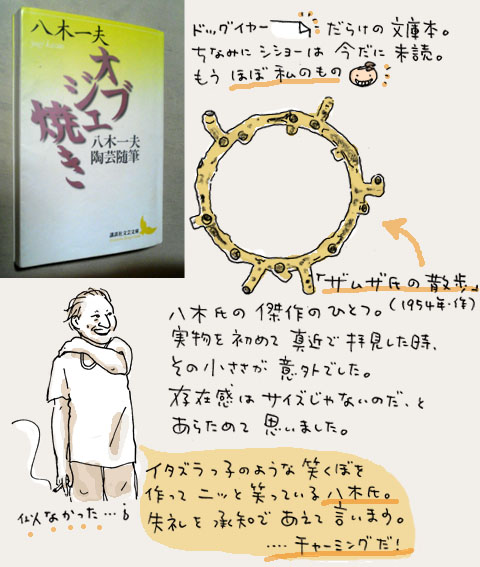 八木一夫
オブジェ焼き
八木一夫
陶芸随筆
講談社文芸文庫
ドッグイヤー だらけの文庫本。
ちなみに シショーは 今だに 未読。
もう ほぼ 私のもの
「ザムザ氏の散歩」
(1954年・作)
八木氏の 傑作のひとつ。
実物を初めて 真近で 拝見した時、
その小ささが 意外でした。
存在感は サイズじゃないのだ、と
あらためて 思いました。
イタズラっ子のような 笑くぼを
作って ニッと 笑っている 八木氏。
失礼を 承知で あえて 言います。
‥‥チャーミングだ!
似なかった…